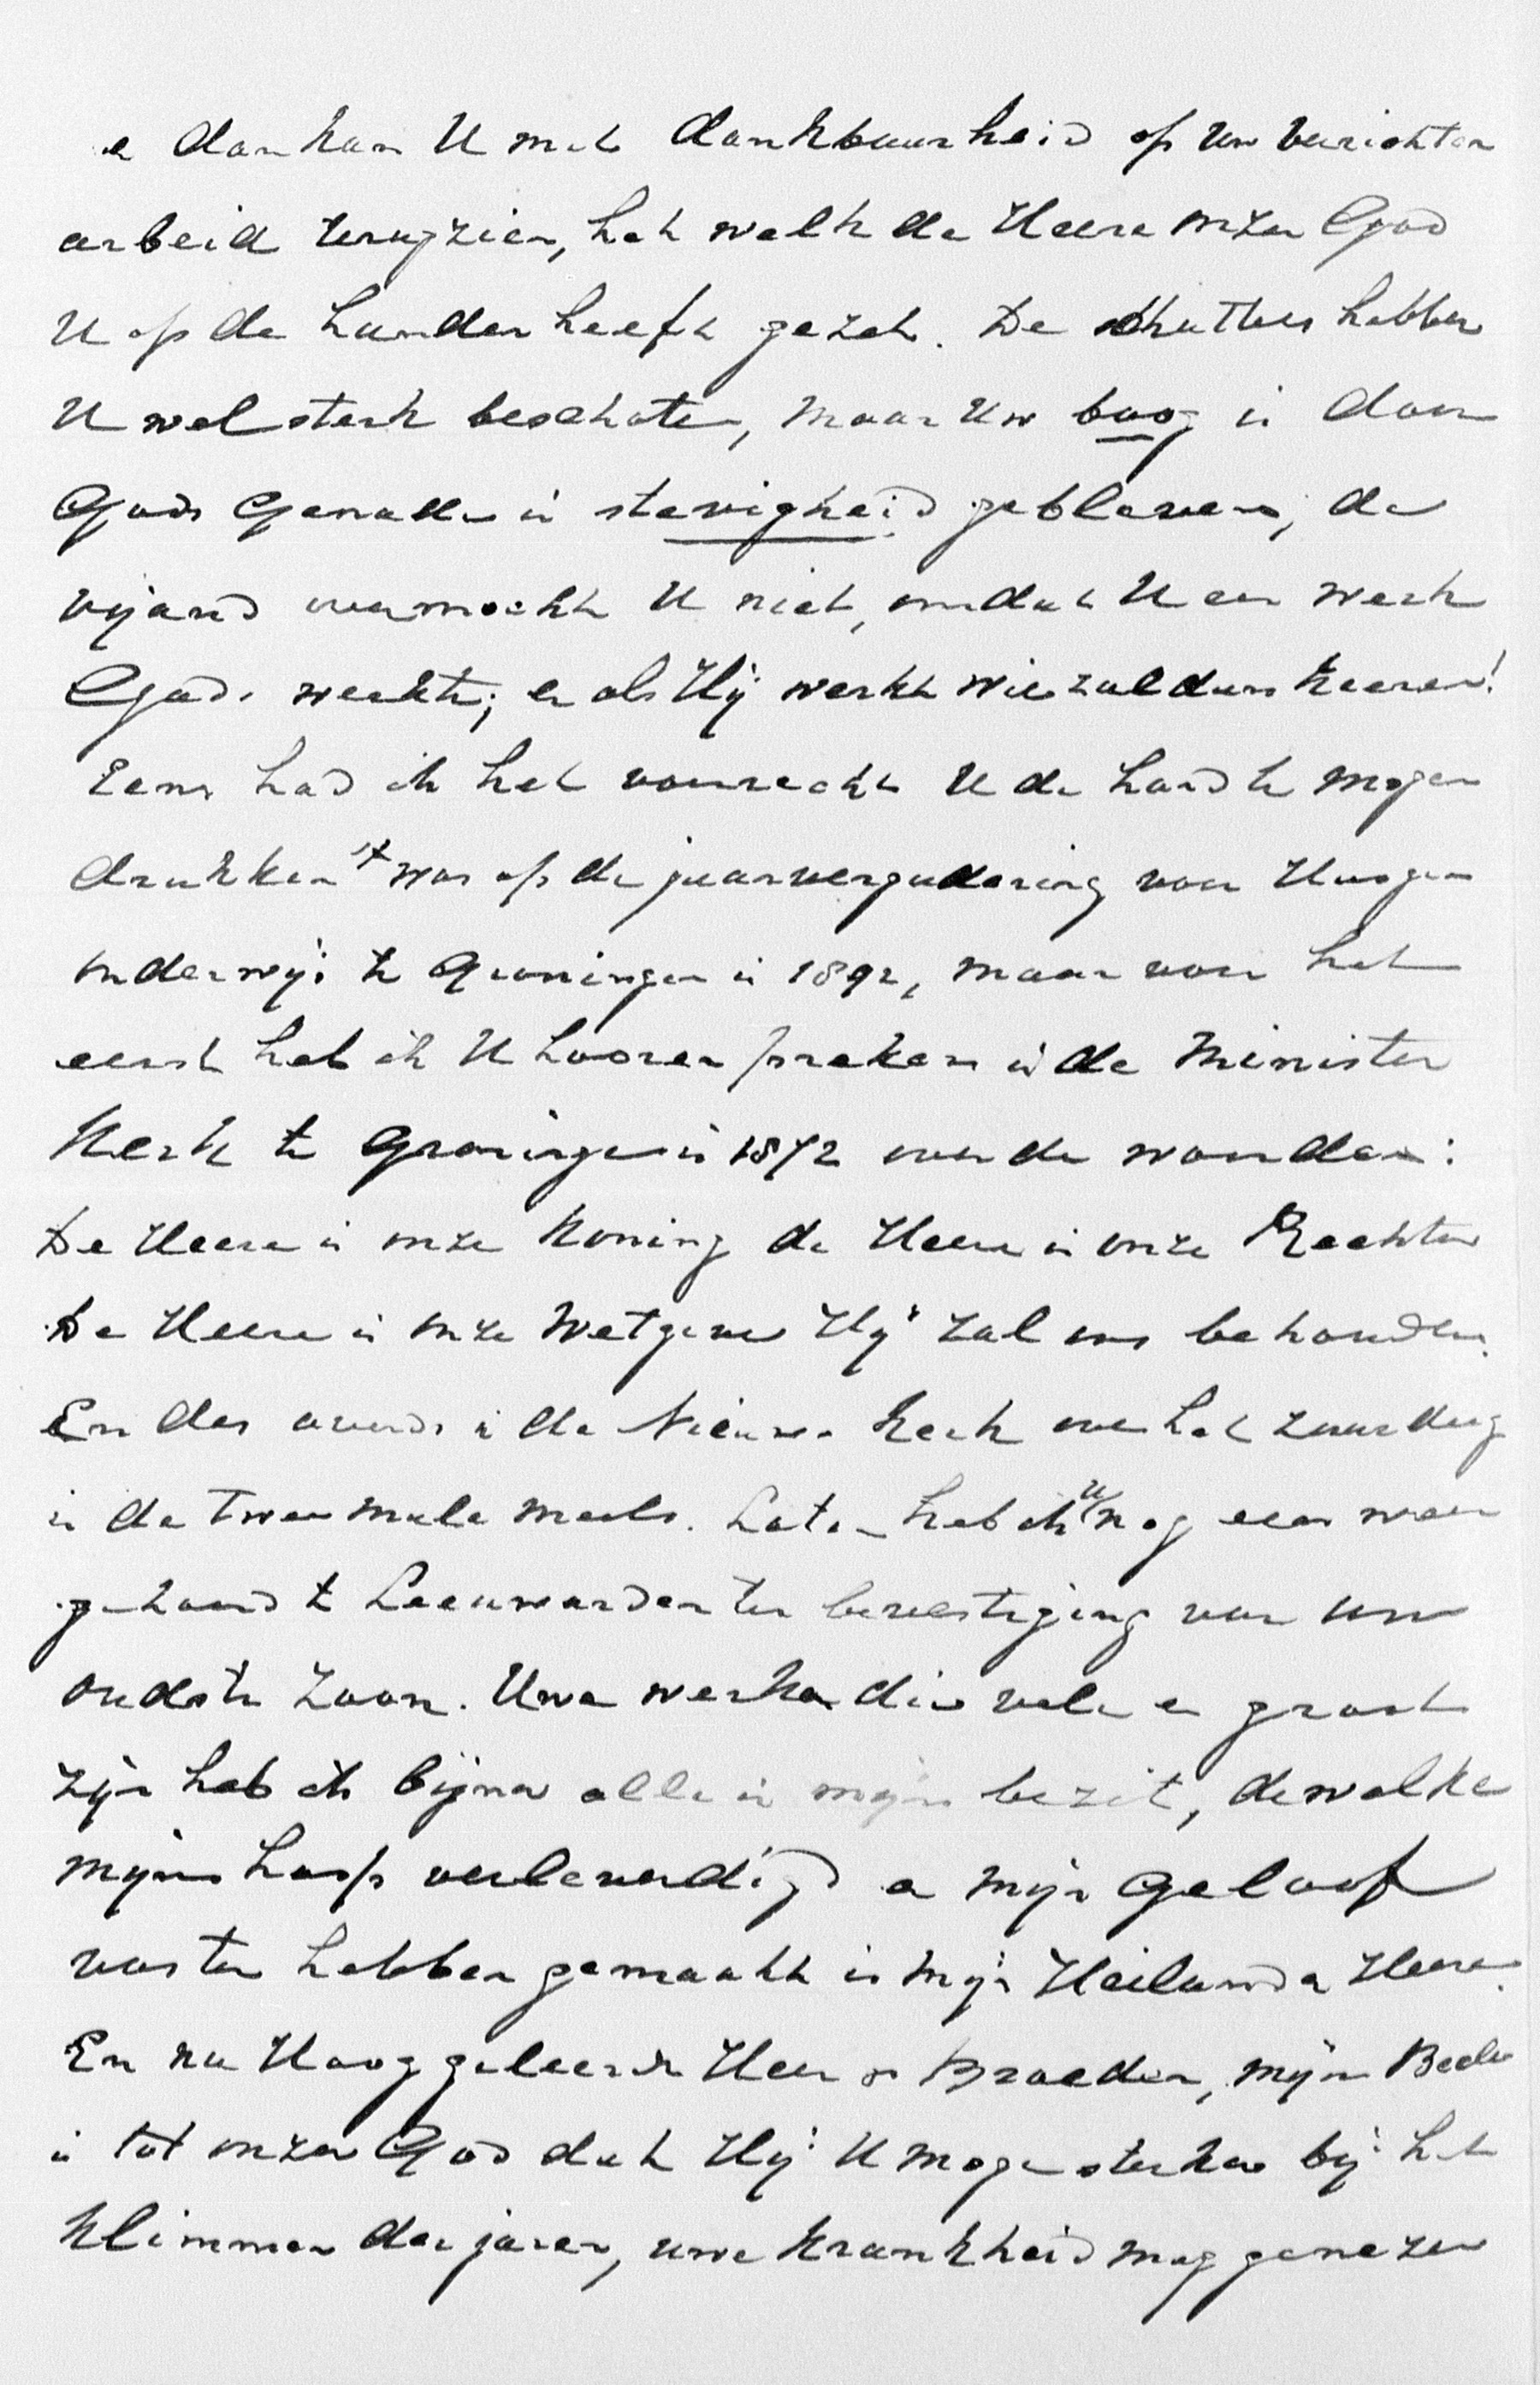 en dan kan U met dankbaarheid op Uw verrichten
arbeid terugzien, het welk de Heere onzen God
U op de handen heeft gezet. De schutters hebben
U wel sterk beschoten, maar Uw boog is door
Gods Genade in stevigheid gebleven, de
vijand vermocht U niet, omdat U een werk
Gods werkte; en als Hij werkt wie zal dan keeren!
Eens had ik het voorrecht U de hand te mogen
drukken 't was op de jaarvergadering voor Hooger
onderwijs te Groningen in 1892, maar voor het
eerst heb ik U hooren preken in de Minister
Kerk te Groningen in 1872 over de woorden:
De Heere is onze Koning de Heere is onze Rechter
De Heere is onze Wetgever Hij zal ons behouden.
En des avonds in de Nieuwe Kerk over het zuurdeeg
in de twee male meels. Later heb ik U nog eens weer
gehoord te Leeuwarden ter bevestiging van uw
oudste zoon. Uwe werken die vele en groot
zijn heb ik bijna alle in mijn bezit, dewelke
mijne hoop verlevendigd en mijn geloof
vaster hebben gemaakt in mijn Heiland en Heere.
En nu Hooggeleerde Heer en Broeder, mijn Bede
is tot onzen God dat Hij U moge sterken bij het
klimmen der jaren, uwe krankheid mag genezen